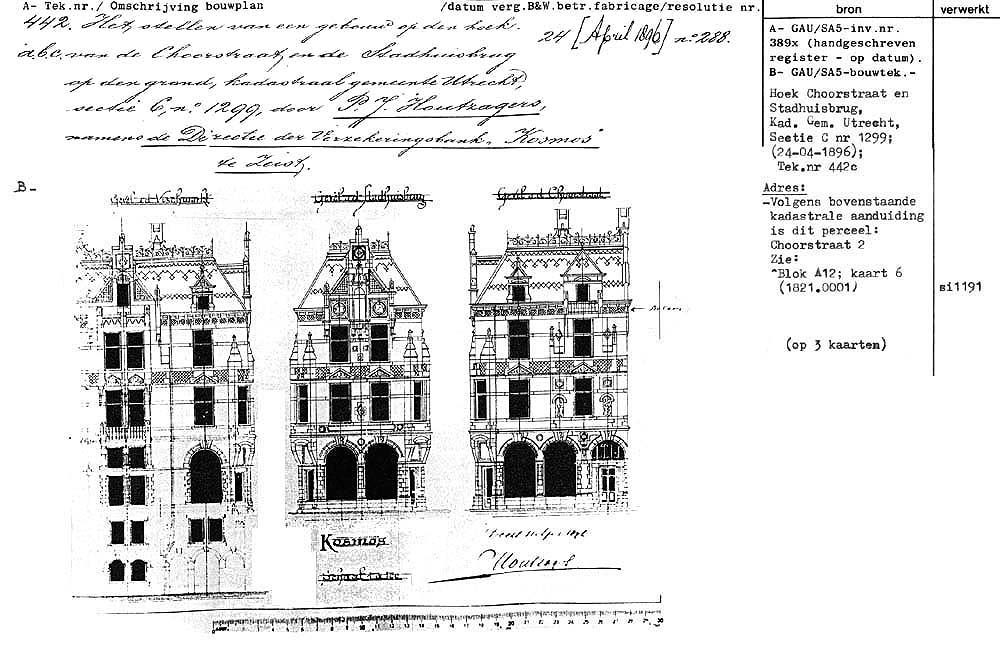 A- Tek.nr./ Omschrijving bouwplan
/datum verg.B&W.betr.fabricage/resolutie nr.
bron
verwerkt
442. Het stellen van een gebouw op den hoek
a.b.c. van de Choorstraat en de Stadhuisbrug
op den grond, kadastraal gemeente Utrecht,
sectie C, n° 1299, door P. J. Houtzagers,
namens de Directie der Verzekeringsbank "Kosmos"
te Zeist.
24 [April 1896] n° 288.
A- GAU/SA5-inv.nr.
389x (handgeschreven
register - op datum).
B- GAU/SA5-bouwtek.-
Hoek Choorstraat en
Stadhuisbrug,
Kad. Gem. Utrecht,
Sectie C nr 1299;
(24-04-1896);
Tek.nr 442c
Adres:
-Volgens bovenstaande
kadastrale aanduiding
is dit perceel:
Choorstraat 2
Zie:
^Blok A12; kaart 6
(1821.0001)
si1191
(op 3 kaarten)
B-
Gevel a/d Vischmarkt
Gevel a/d Stadhuisbrug
Gevel a/d Choorstraat
Kosmos
Houtzagers